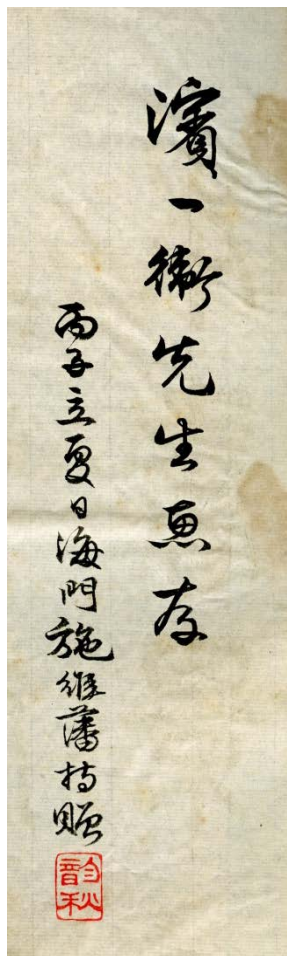 濱一衞先生惠存
丙子立夏日海門施維藩持贈
韵秋